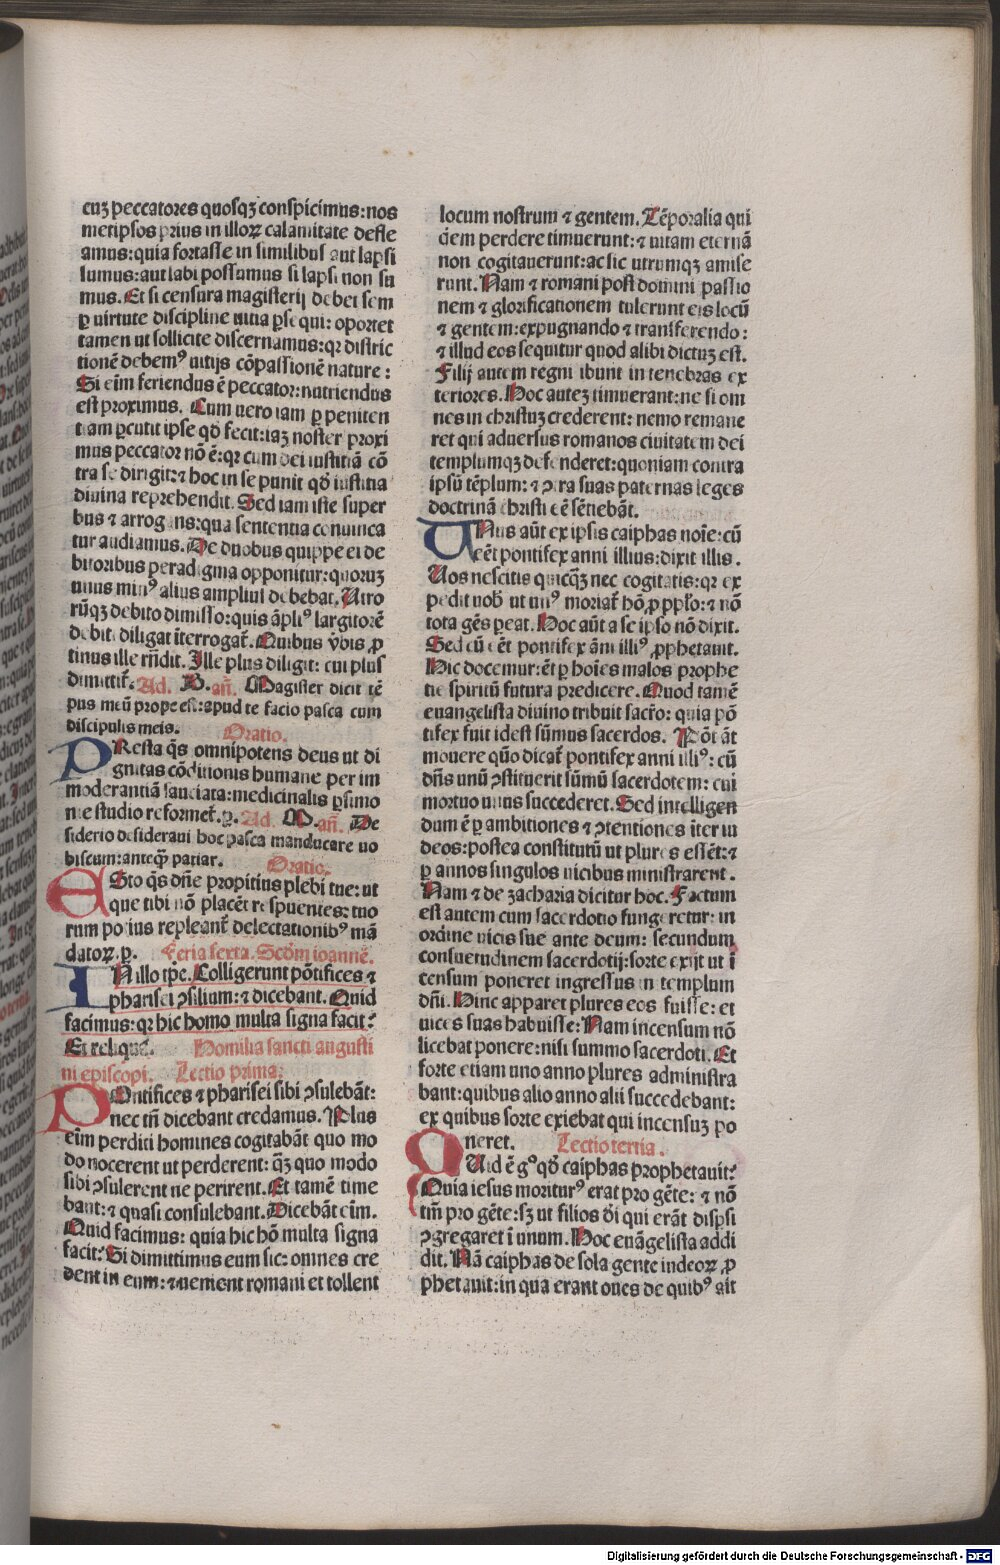 cuȝ peccatores quosqȝ conspicimus: nos
metipsos prius in illoꝝ calamitate defle
amus: quia fortasse in similibus aut lapsi
sumus: aut labi possumus si lapsi non su
mus. Et si censura magisterij debet sem
ꝑ uirtute discipline uitia ꝑse qui: oportet
tamen ut sollicite discernamus: qꝛ distric
tionē debemꝰ uitijs cōpassionē nature:
Si eīm feriendus ē peccator: nutriendus
est proximus. Cum uero iam ꝑ peniten
tiam ꝑcutit ipse qđ fecit: iaȝ noster proxi
mus peccator nō ē: qꝛ cum dei iustitiā cō
tra se dirigit: ⁊ hoc in se punit qđ iustitia
diuina reprehendit. Sed iam iste super
bus ⁊ arrogans: qua sententia conuinca
tur audiamus. De duobus quippe ei de
bitoribus peradigma opponitur: quoruȝ
unus minꝰ alius amplius debebat. Utro
rūqȝ debito dimisso: quis āpliꝰ largitorē
debiti diligat īterrogat᷑. Quibus v̄bis ꝓ
tinus ille rn̄dit. Ille plus diligit: cui plus
dimittit᷑. Ad. B. an̄. Magister dicit tē
pus meū prope est: apud te facio pasca cum
discipulis meis. Oratio.
PResta q̄s omnipotens deus ut di
gnitas cōditionis humane per im
moderantiā sauciata: medicinalis ꝑsimo
nie studio reformet᷑. ꝑ. Ad. M. an̄. De
siderio desideraui hoc pasca manducare uo
biscum: anteqȝ patiar. Oratio.
ESto q̄s dn̄e propitius plebi tue: ut
que tibi nō placēt respuentes: tuo
rum potius repleant᷑ delectationibꝰ mā
datoꝝ. ꝑ. Feria sexta. Scđm ioannē.
IN illo tꝑe. Collegerunt pōtifices ⁊
pharisei ↄsilium: ⁊ dicebant. Quid
facimus: qꝛ hic homo multa signa facit?
Et reliqua. Homilia sancti augusti
ni episcopi. Lectio prima.
POntifices ⁊ pharisei sibi ↄsulebāt:
nec tn̄ dicebant credamus. Plus
eīm perditi homines cogitabāt quo mo
do nocerent ut perderent: qȝ quo modo
sibi ↄsulerent ne perirent. Et tamē time
bant: ⁊ quasi consulebant. Dicebāt eīm.
Quid facimus: quia hic hō multa signa
facit? Si dimittimus eum sic: omnes cre
dent in eum: ⁊ uenient romani et tollent
locum nostrum ⁊ gentem. Tēporalia qui
dem perdere timuerunt: ⁊ uitam eternā
non cogitauerunt: ac sic utrumqȝ amise
runt. Nam ⁊ romani post domini passio
nem ⁊ glorificationem tulerunt eis locū
⁊ gentem: expugnando ⁊ transferendo:
⁊ illud eos sequitur quod alibi dictuȝ est.
Filij autem regni ibunt in tenebras ex
teriores. Hoc auteȝ timuerant: ne si om
nes in christuȝ crederent: nemo remane
ret qui aduersus romanos ciuitatem dei
templumqȝ defenderet: quoniam contra
ipsū tēplum: ⁊ ↄtra suas paternas leges
doctrinā christi eē sētiebāt.
UNus aūt ex ipsis caiphas noīe: cū
eēt pontifex anni illius: dixit illis.
Uos nescitis quicqȝ nec cogitatis: qꝛ ex
pedit uob̄ ut unꝰ moriat᷑ hō ꝓ ppl̄o: ⁊ nō
tota gēs ꝑeat. Hoc aūt a se ipso nō dixit.
Sed cū eēt pontifex āni illiꝰ ꝓphetauit.
Hic docemur: ēt ꝑ hoīes malos prophe
tie spiritū futura predicere. Quod tamē
euangelista diuino tribuit sacr̄o: quia pō
tifex fuit idest sūmus sacerdos. Pōt āt
mouere quō dicat᷑ pontifex anni illiꝰ: cū
dn̄s unū ↄstituerit sūmū sacerdotem: cui
mortuo unus succederet. Sed intelligen
dum ē ꝑ ambitiones ⁊ ↄtentiones iter iu
deos: postea constitutū ut plures essēt: ⁊
ꝑ annos singulos uicibus ministrarent.
Nam ⁊ de zacharia dicitur hoc. Factum
est autem cum sacerdotio fungeretur: in
ordine uicis sue ante deum: secundum
consuetudinem sacerdotij: sorte exijt ut ī
censum poneret ingressus in templum
dn̄i. Hinc apparet plures eos fuisse: et
uices suas habuisse: Nam incensum nō
licebat ponere: nisi summo sacerdoti. Et
forte etiam uno anno plures administra
bant: quibus alio anno alii succedebant:
ex quibus sorte exiebat qui incensuȝ po
neret. Lectio tertia.
QUid ē gꝰ qđ caiphas prophetauit?
Quia iesus moriturꝰ erat pro gēte: ⁊ nō
tm̄ pro gēte: sȝ ut filios dī qui erāt dispsi
ↄgregaret ī unum. Hoc euāgelista addi
dit. Nā caiphas de sola gente iudeoꝝ ꝓ
phetauit: in qua erant oues de quibꝰ ait
Digitalisierung gefördert durch die Deutsche Forschungsgemeinschaft - DFG